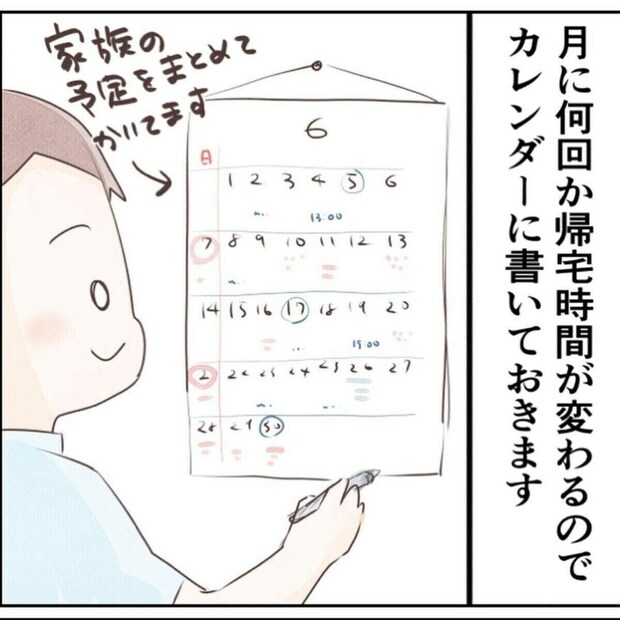 月に何回か帰宅時間が変わるので
カレンダーに書いておきます
家族の
予定をまとめて
かいてます
6
日
1 2 3 4 5 6
13:00
7 8 9 10 11 12 13
14 15 16 17 18 19 20
19:00
2 22 23 24 25 26 27
28 29 30